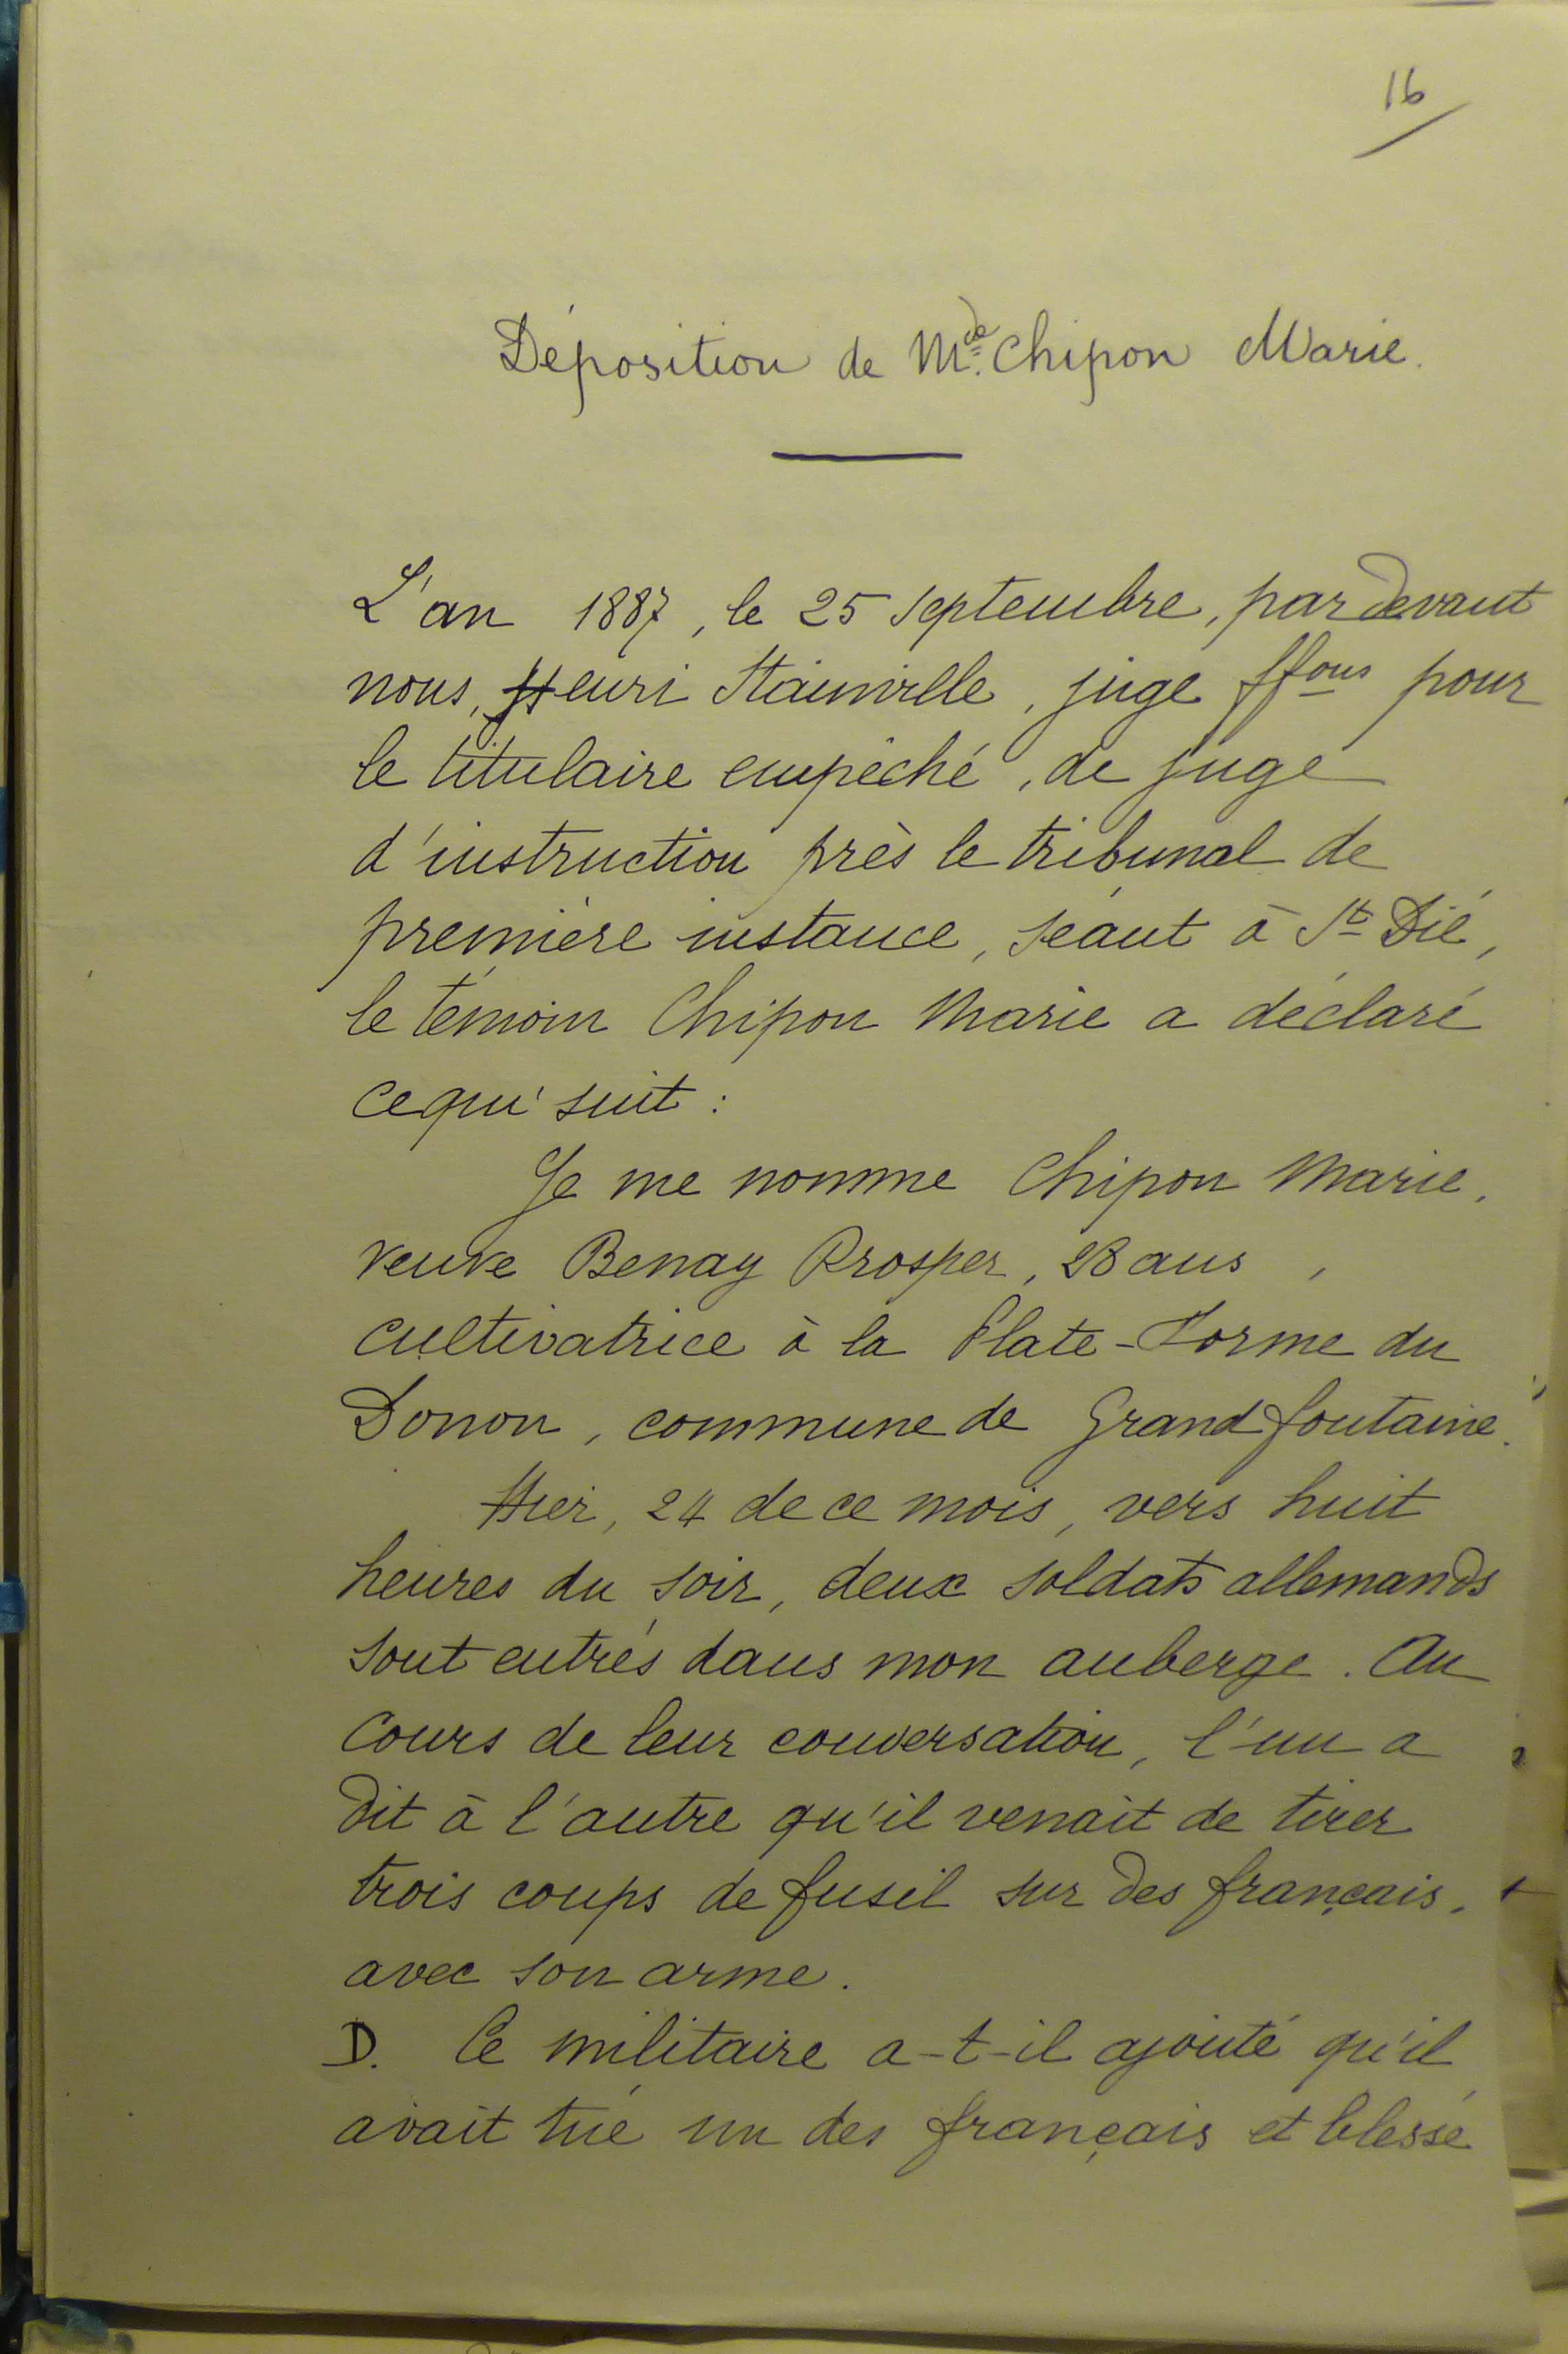 16
Déposition de Mde Chipon Marie.
L'an 1887, le 25 septembre, par devant
nous, Henri Stainville, juge ffons pour
le titulaire empêché, de juge
d'instruction près le tribunal de
première instance, séant à St Dié,
le témoin Chipon Marie a déclaré
ce qui suit :
Je me nomme Chipon Marie,
veuve Benay Prosper, 28 ans,
cultivatrice à la Plate-Forme du
Donon, commune de Grandfontaine.
Hier, 24 de ce mois, vers huit
heures du soir, deux soldats allemands
sont entrés dans mon auberge. Au
cours de leur conversation, l'un a
dit à l'autre qu'il venait de tirer
trois coups de fusil sur des français,
avec son arme.
D. Ce militaire a-t-il ajouté qu'il
avait tué un des français et blessé